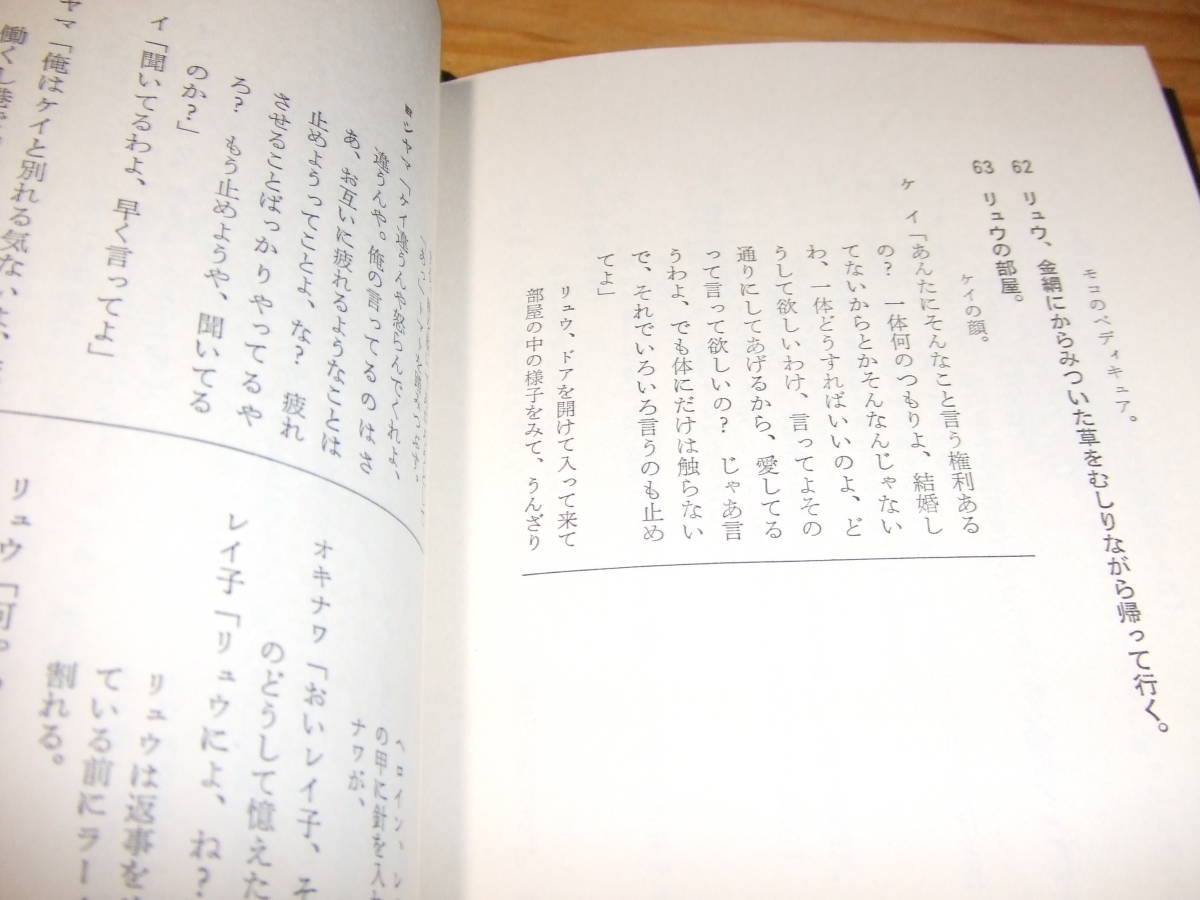 モコのペディキュア。
62 リュウ、金網にからみついた草をむしりながら帰って行く。
63 リュウの部屋。
ケイの顔。
ケ イ「あんたにそんなこと言う権利ある
の? 一体何のつもりよ、結婚し
てないからとかそんなんじゃない
わ、一体どうすればいいのよ、ど
うして欲しいわけ、言ってよその
通りにしてあげるから、愛してる
って言って欲しいの? じゃあ言
うわよ、でも体にだけは触らない
で、それでいろいろ言うのも止め
てよ」
リュウ、ドアを開けて入って来て
部屋の中の様子をみて、うんざり
シヤマ「ケイ違うんや怒らんでくれよ、
違うんや。俺の言ってるのはさ
あ、お互いに疲れるようなことは
止めようってことよ、な? 疲れ
させることばっかりやってるや
ろ? もう止めようや、聞いてる
のか?」
イ「聞いてるわよ、早く言ってよ」
ヤマ「俺はケイと別れる気ないよ、
働くし港で
ヘロイン、シ
の甲に針を入れ
ナワが、
オキナワ「おいレイ子、そ
のどうして憶えた
レイ子「リュウによ、ね?
リュウは返事を
ている前にラー
割れる。
リュウ「何